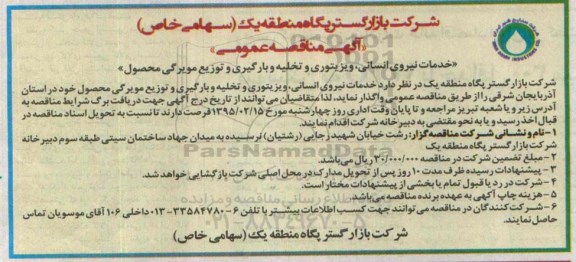 شرکت بازار گستر پگاه منطقه یک (سهامی خاص)
«آگهی مناقصه عمومی»
«خدمات نیروی انسانی، ویزیتوری و تخلیه و بارگیری و توزیع مویرگی محصول»
شرکت بازار گستر پگاه منطقه یک در نظر دارد خدمات نیروی انسانی، ویزیتوری و تخلیه و بارگیری و توزیع مویرگی محصول خود در استان
آذربایجان شرقی را از طریق مناقصه عمومی واگذار نماید، لذا متقاضیان می توانند از تاریخ درج آگهی جهت دریافت برگ شرایط مناقصه به
آدرس زیر و یا شعبه تبریز مراجعه و تا پایان وقت اداری روز چهارشنبه مورخ ۱۳۹۵/۰۲/۱۵ فرصت دارند تا نسبت به تحویل اسناد مناقصه در
قبال اخذ رسید و یا به نحو مقتضی به دبیرخانه شرکت اقدام نمایند.
۱- نام و نشانی شرکت مناقصه گزار: رشت خیابان شهید رجایی (رشتیان) نرسیده به میدان جهاد ساختمان سیتی طبقه سوم دبیرخانه
شرکت بازار گستر پگاه منطقه یک
۲- مبلغ تضمین شرکت در مناقصه ۳۰/۰۰۰/۰۰۰ ریال می باشد.
۳- پیشنهادات رسیده ظرف مدت ۱۰ روز پس از تحویل مدارک در محل اصلی شرکت بازگشایی خواهد شد.
۴- شرکت در رد یا قبول تمام یا بخشی از پیشنهادات مختار است.
۵- هزینه چاپ آگهی به عهده برنده مناقصه می باشد.
۶- شرکت کنندگان در مناقصه می توانند جهت کسب اطلاعات بیشتر با تلفن ۶-۳۳۵۸۴۷۸۰-۰۱۳ داخلی ۱۰۶ آقای موسویان تماس
حاصل نمایند.
شرکت بازار گستر پگاه منطقه یک (سهامی خاص)
ParsNamadData